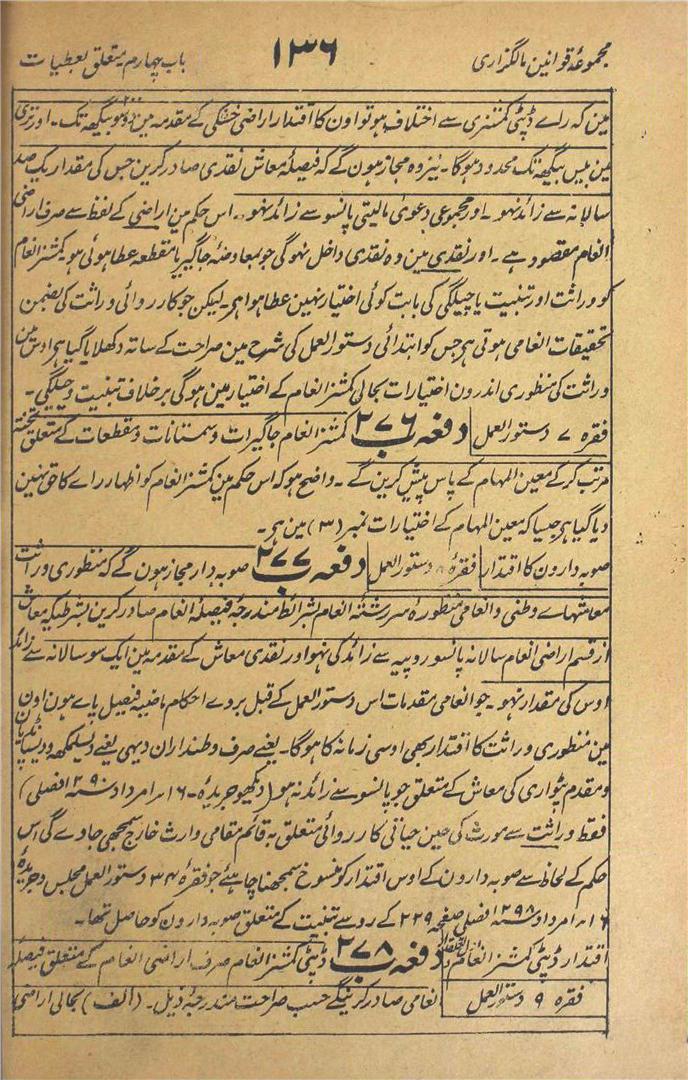 مجموعۂ قوانین مالگزاری ۱۳۶ باب چہارم متعلق بعطیات
مین کہ راے ڈپٹی کمشنری سے اختلاف ہو تو اون کا اقتدار اراضی خشکی کے مقدمہ مین دو سو بیگھہ تک ۔ اور تری
مین بیس بیگھہ تک محدود ہوگا ۔ نیز وہ مجاز ہون گے کہ فیصلۂ معاش نقدی صادر کرین جس کی مقدار یک صد
سالانہ سے زائد نہو ۔ اور مجموعی دعویٰ مالیتی پانسو سے زائد نہو ۔ اس حکم مین اراضی کے لفظ سے صرف اراضی
انعام مقصود ہے ۔ اور نقدی مین وہ نقدی داخل نہوگی جو بمعاوضہ جاگیر یا مقطعہ عطا ہوئی ہو کمشنر انعام
کو وراثت اور تبنیت یا چیلگی کی بابت کوئی اختیار نہین عطا ہوا ہر ۔ لیکن جو کارروائی وراثت کی بضمن
تحقیقات انعامی ہوتی ہر جس کو ابتدائی دستور العمل کی شرح مین صراحت کے ساتہ دکھلایا گیا ہر اوس مین
وراثت کی منظوری اندرون اختیارات بحالی کمشنر انعام کے اختیار مین ہوگی برخلاف تبنیت و چیلگی ۔
فقرہ ۷ دستور العمل دفعہ ۲۷۶ ب کمشنر انعام جاگیرات و سمستانات و مقطعات کے متعلق تختہ
مرتب کر کے معین المہام کے پاس پیش کرین گے ۔ واضح ہو کہ اس حکم مین کمشنر انعام کو اظہار راے کا حق نہین
دیا گیا ہر جیسا کہ معین المہام کے اختیارات نمبر (۳) مین ہر ۔
صوبہ دارون کا اقتدار فقرۂ ۸ دستور العمل دفعہ ۲۷۷ ب صوبہ دار مجاز ہون گے کہ منظوری وراثت
معاشہاے وطنی و انعامی منظورہ سررشتۂ انعام بشرائط مندرجہ فیصلۂ انعام صادر کرین بشرطیکہ معاش
از قسم اراضی انعام سالانہ پانسو روپیہ سے زائد کی نہو اور نقدی معاش کے مقدمہ مین ایک سو سالانہ سے زائد
اوس کی مقدار نہو ۔ جو انعامی مقدمات اس دستور العمل کے قبل بروے احکام ماضیہ فیصل پاے ہون اون
مین منظوری وراثت کا اقتدار بھی اوسی زمانہ کا ہوگا ۔ یعنے صرف وطنداران دیہی یعنے دیسمکھہ و دیسپانڈیان
و مقدم پٹواری کی معاش کے متعلق جو پانسو سے زائد نہ ہو (دیکھو جریدہ ۔ ۱۶ ۔ امرداد سنہ ۱۲۹۰ فصلی)
فقط وراثت سے مورث کی حین حیاتی کارروائی متعلق بہ قائم مقامی وارث خارج سمجھی جاوے گی اس
حکم کے لحاظ سے صوبہ دارون کے اوس اقتدار کو منسوخ سمجھنا چاہئے جو فقرۂ ۳۴ دستور العمل مجلس و جریدۂ
۱۶ ۔ امرداد سنہ ۱۲۹۸ فصلی صفحہ ۲۲۹ کے رو سے تبنیت کے متعلق صوبہ دارون کو حاصل تھا ۔
اقتدار ڈپٹی کمشنر انعام دفعہ ۲۷۸ ب ڈپٹی کمشنر انعام صرف اراضی انعام کے متعلق فیصلہ
فقرہ ۹ دستور العمل انعامی صادر کرینگے حسب صراحت مندرجۂ ذیل ۔ (الف) بحالی اراضی